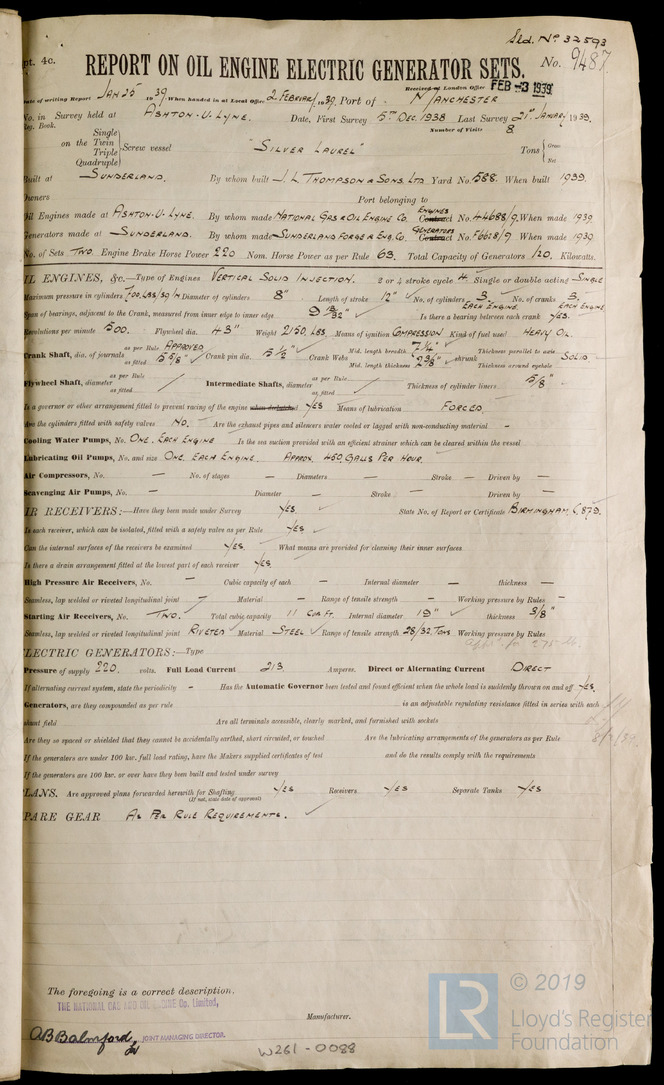 Sld. No 32593
pt. 4c.
REPORT ON OIL ENGINE ELECTRIC GENERATOR SETS. No. 9487
Received at London Office FEB -3 1939
Date of writing Report JAN 25 1939. When handed in at Local Office 2 FEBRUARY 1939. Port of MANCHESTER
No. in Survey held at ASHTON-U-LYNE. Date, First Survey 5TH DEC. 1938 Last Survey 21ST JANUARY 1939.
Reg. Book. Number of Visits 8
on the Single Twin Triple Quadruple Screw vessel "SILVER LAUREL" Tons Gross Net
Built at SUNDERLAND. By whom built J. L. THOMPSON & SONS. LTD Yard No. 588. When built 1939.
Owners Port belonging to
Oil Engines made at ASHTON-U-LYNE. By whom made NATIONAL GAS & OIL ENGINE CO. ENGINES Contract No. 44688/9. When made 1939
Generators made at SUNDERLAND. By whom made SUNDERLAND FORGE & ENG. CO. GENERATORS Contract No. F6628/9 When made 1939
No. of Sets TWO. Engine Brake Horse Power 220 Nom. Horse Power as per Rule 63. Total Capacity of Generators 120. Kilowatts.
OIL ENGINES, &c.—Type of Engines VERTICAL SOLID INJECTION. 2 or 4 stroke cycle 4. Single or double acting SINGLE
Maximum pressure in cylinders 700. LBS/SQ/IN Diameter of cylinders 8" Length of stroke 12" No. of cylinders 3 EACH ENGINE No. of cranks 3. EACH ENGINE
Span of bearings, adjacent to the Crank, measured from inner edge to inner edge Is there a bearing between each crank YES.
Revolutions per minute 500. Flywheel dia. 43" Weight 2150. LBS. Means of ignition COMPRESSION Kind of fuel used HEAVY OIL.
Crank Shaft, dia. of journals as per Rule APPROVED as fitted 5 5/8" Crank pin dia. 5 1/2" Crank Webs Mid. length breadth 7 1/4" Mid. length thickness shrunk Thickness parallel to axis SOLID Thickness around eyehole
Flywheel Shaft, diameter as per Rule as fitted Intermediate Shafts, diameter as per Rule as fitted Thickness of cylinder liners 5/8"
Is a governor or other arrangement fitted to prevent racing of the engine when declutched YES Means of lubrication FORCED.
Are the cylinders fitted with safety valves NO. Are the exhaust pipes and silencers water cooled or lagged with non-conducting material -
Cooling Water Pumps, No. ONE. EACH ENGINE Is the sea suction provided with an efficient strainer which can be cleared within the vessel
Lubricating Oil Pumps, No. and size ONE. EACH ENGINE. APPROX. 450. GALLS PER HOUR.
Air Compressors, No. — No. of stages - Diameters — Stroke — Driven by —
Scavenging Air Pumps, No. — Diameter — Stroke — Driven by —
AIR RECEIVERS:—Have they been made under Survey YES. State No. of Report or Certificate BIRMINGHAM, C. 879.
Is each receiver, which can be isolated, fitted with a safety valve as per Rule YES
Can the internal surfaces of the receivers be examined YES. What means are provided for cleaning their inner surfaces
Is there a drain arrangement fitted at the lowest part of each receiver YES
High Pressure Air Receivers, No. — Cubic capacity of each — Internal diameter — thickness —
Seamless, lap welded or riveted longitudinal joint - Material — Range of tensile strength — Working pressure by Rules -
Starting Air Receivers, No. TWO. Total cubic capacity 11 CUB. FT. Internal diameter 19" thickness 3/8"
Seamless, lap welded or riveted longitudinal joint RIVETED Material STEEL Range of tensile strength 28/32. TONS Working pressure by Rules
ELECTRIC GENERATORS:—Type
Pressure of supply 220. volts. Full Load Current 213 Amperes. Direct or Alternating Current DIRECT
If alternating current system, state the periodicity - Has the Automatic Governor been tested and found efficient when the whole load is suddenly thrown on and off YES.
Generators, are they compounded as per rule is an adjustable regulating resistance fitted in series with each
shunt field Are all terminals accessible, clearly marked, and furnished with sockets
Are they so spaced or shielded that they cannot be accidentally earthed, short circuited, or touched Are the lubricating arrangements of the generators as per Rule
If the generators are under 100 kw. full load rating, have the Makers supplied certificates of test and do the results comply with the requirements
If the generators are 100 kw. or over have they been built and tested under survey
PLANS. Are approved plans forwarded herewith for Shafting YES Receivers YES Separate Tanks YES
(If not, state date of approval)
SPARE GEAR AS PER RULE REQUIREMENTS.
The foregoing is a correct description.
THE NATIONAL GAS AND OIL ENGINE Co. Limited,
Manufacturer.
A B Balmford JOINT MANAGING DIRECTOR.
W261-0088
LR © 2019
Lloyd's Register
Foundation